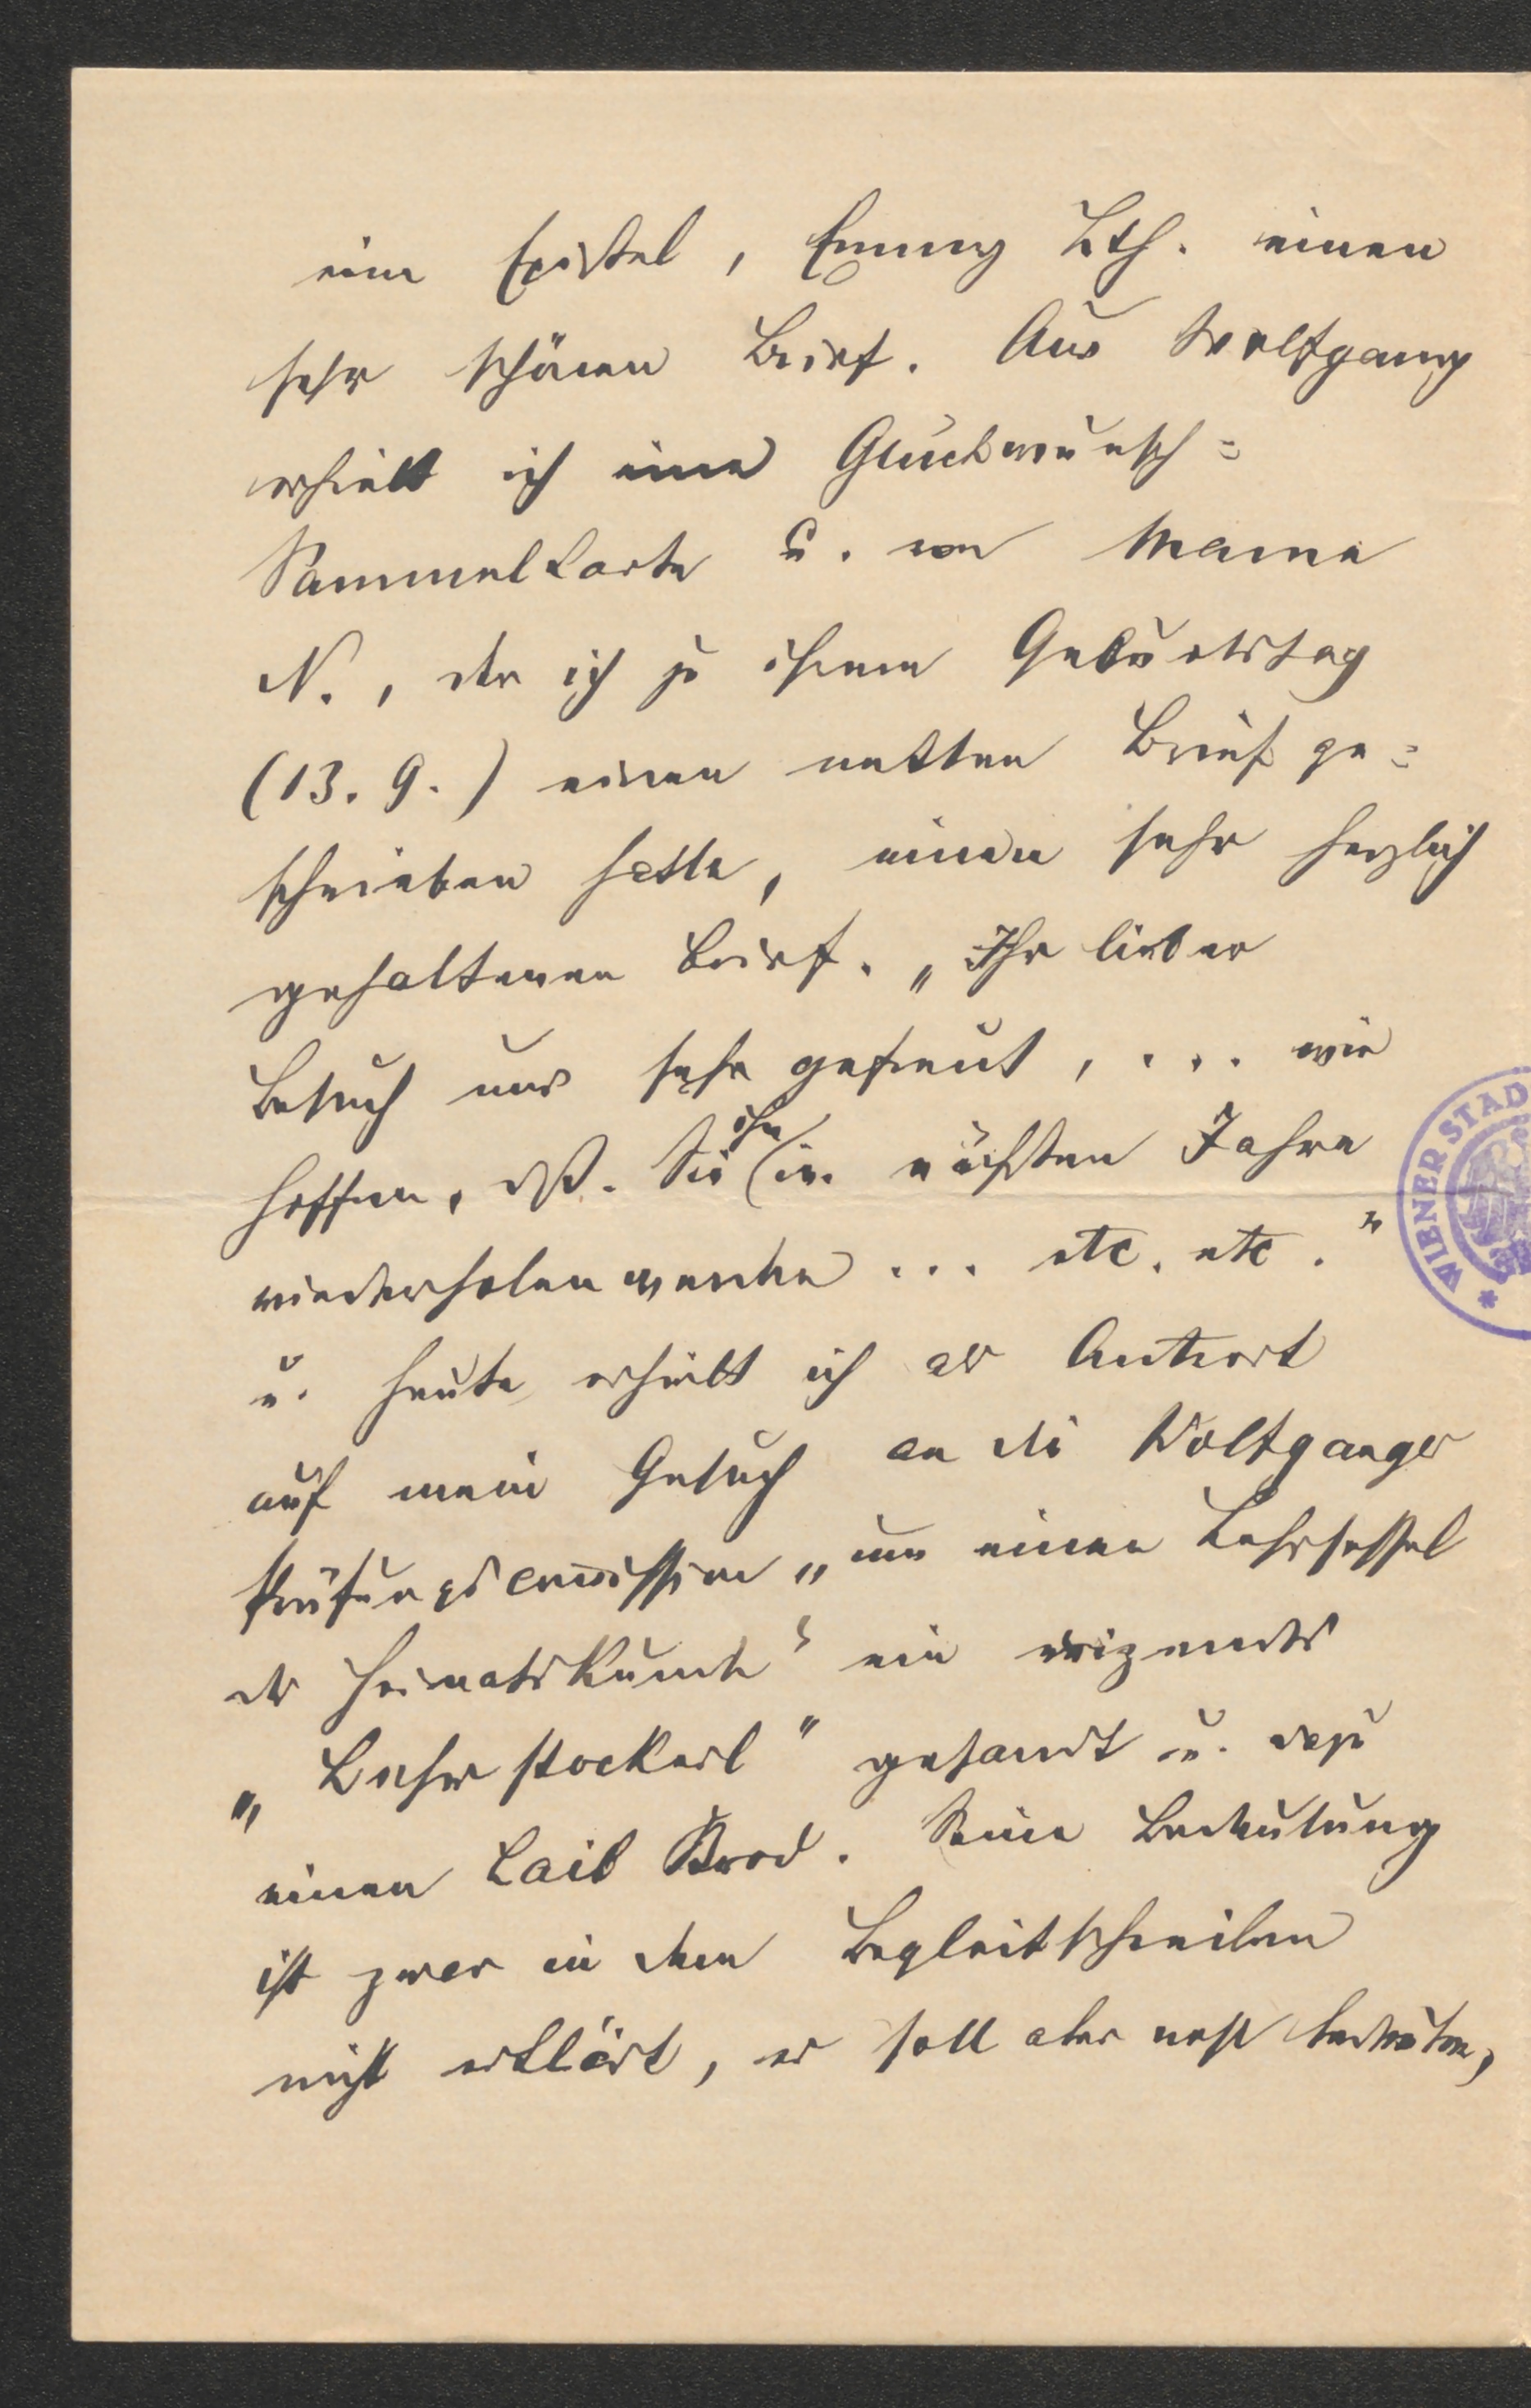 eine Epistel, Emmy Lth. einen
sehr schönen Brief. Aus Wolfgang
erhielt ich eine Glückwunsch=
Sammelkarte u. von Mama
N., der ich zu ihrem Geburtstag
(13. 9.) einen netten Brief ge=
schrieben hatte, einen sehr herzlich
gehaltenen Brief. „Ihr lieber
Besuch uns sehr gefreut, ... wir
hoffen, dß. Sie ihn im nächsten Jahre
wiederholen werden ... etc. etc."
u. heute erhielt ich als Antwort
auf mein Gesuch an die Wolfganger
Prüfungscommission „um einen Lehrsessel
der Heimatskunde" ein reizendes
„Lehrstockerl" gesandt u. dazu
einen Laib Brod. Seine Bedeutung
ist zwar in dem Begleitschreiben
nicht erklärt, er soll aber wohl bedeuten,
WIENER STAD